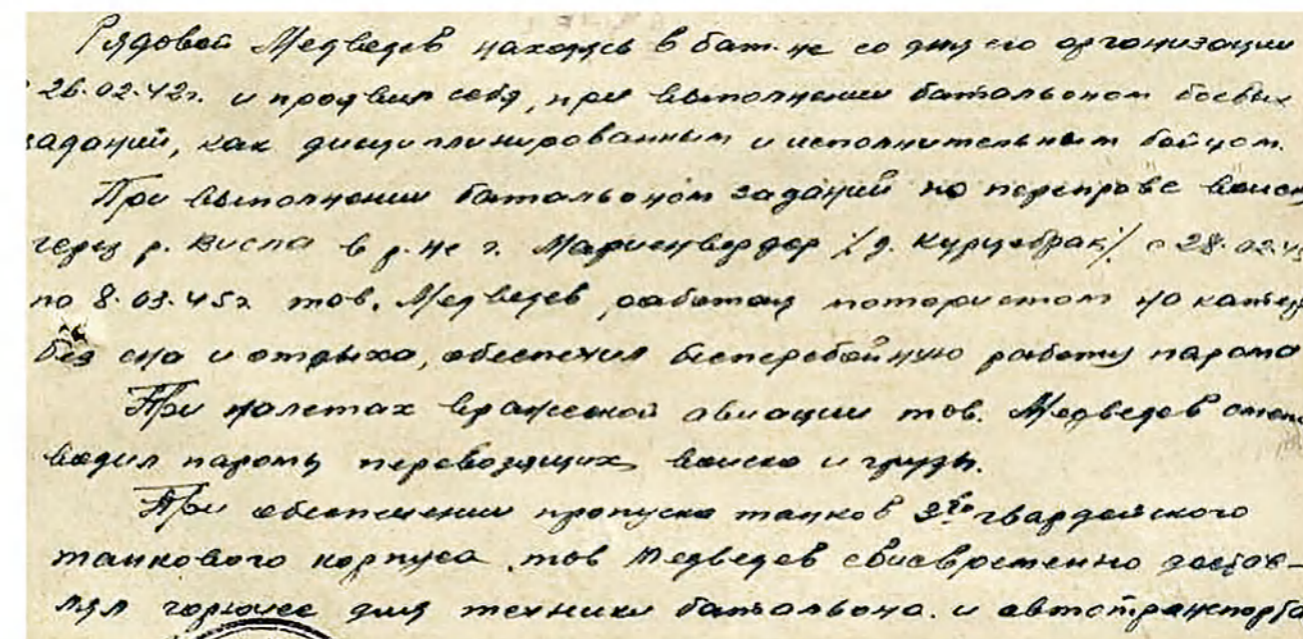 Рядовой Медведев находясь в бат-не со дня его организации
26.02.42г. и проявил себя, при выполнении батальоном боевых
заданий, как дисциплинированным и исполнительным бойцом.
При выполнении батальоном заданий по переправе войск
через р. Висла в р-не г. Мариенвердер /д. Курцебрак/ с 28.02.45
по 8.03.45г. тов. Медведев, работая мотористом на катере
без сна и отдыха, обеспечил бесперебойную работу парома
При налетах вражеской авиации тов. Медведев
водил паромы перевозящих войска и грузы.
При обеспечении пропуска танков 3го гвардейского
танкового корпуса, тов Медведев своевременно достав-
лял горючее для техники батальона. и автотранспорта